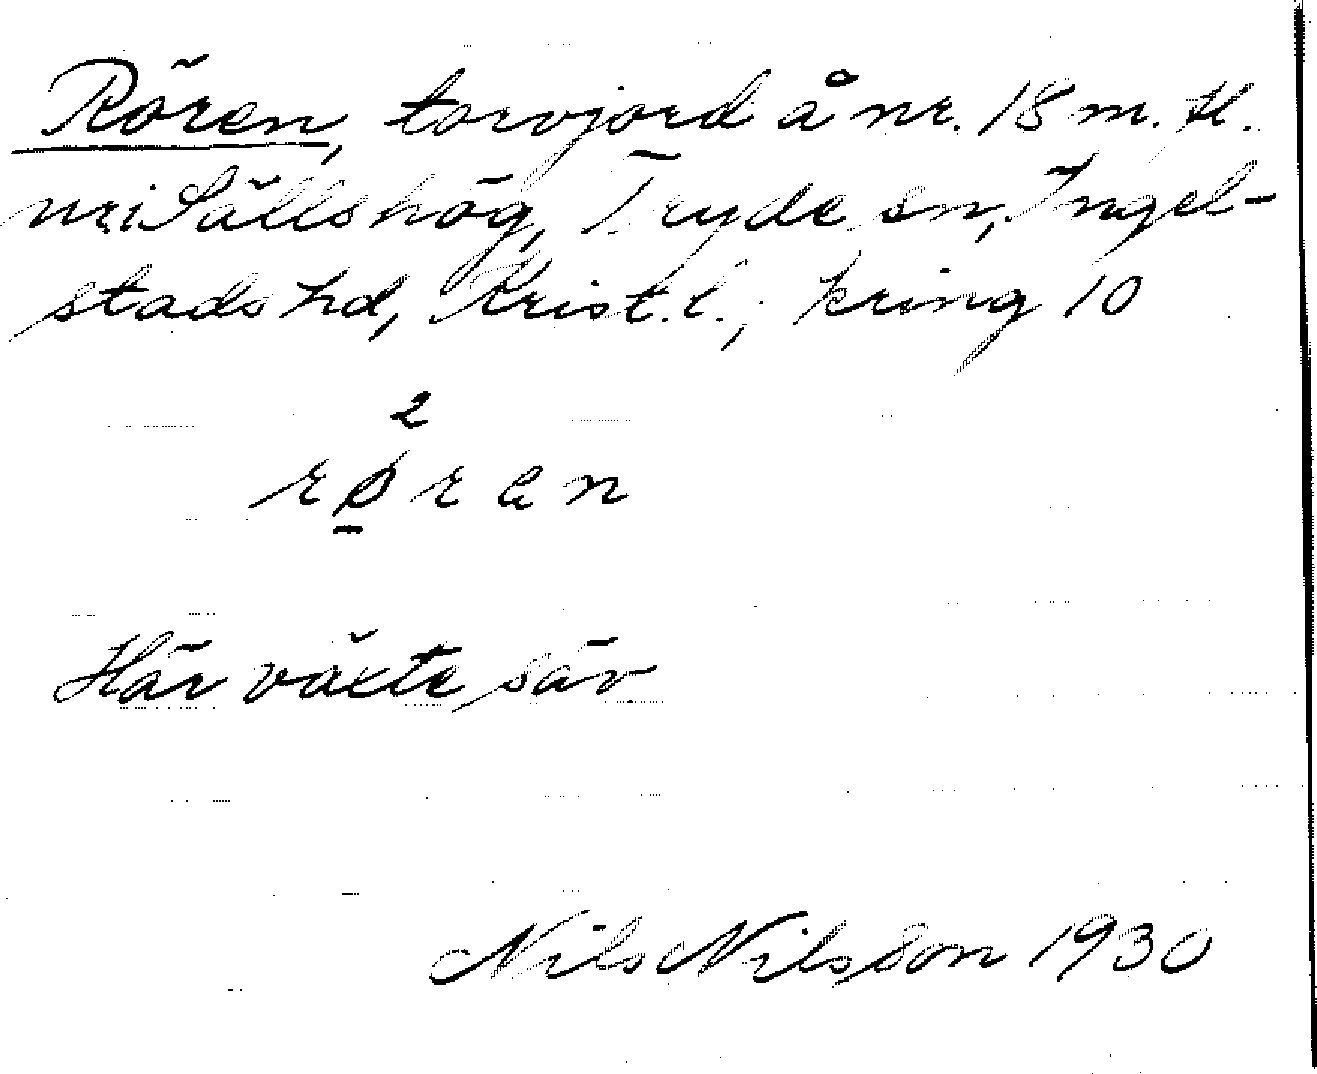 Rören, torvjord å nr. 18 m. fl.
nr i Sällshög, Tryde sn, Ingel-
stads hd, Krist. l.; kring 10
2
røren
Här växte säv
Nils Nilsson 1930